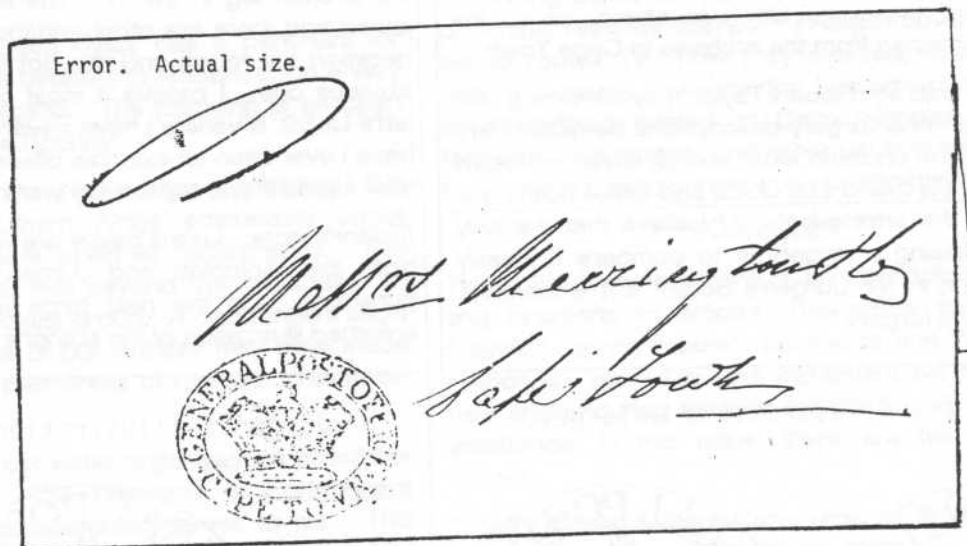 Error. Actual size.
Messrs. Merrington
Cape Town
GENERAL POST OFFICE
CAPE TOWN